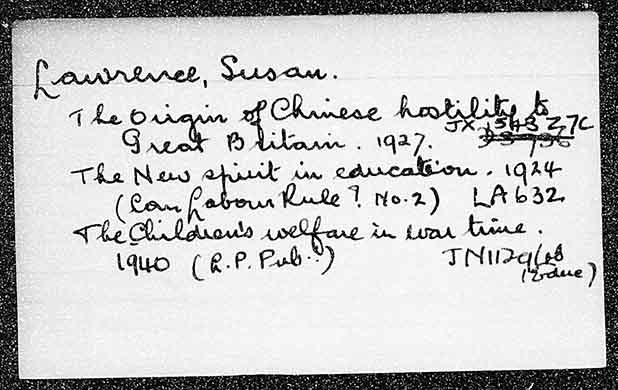 Lawrence, Susan.
The Origin of Chinese hostility to
Great Britain. 1927. JX 1543 Z7C
The New spirit in education. 1924
(Can Labour Rule? No. 2) LA632
The Children's welfare in war time.
1940 (L.P. Pub.:) JN1129